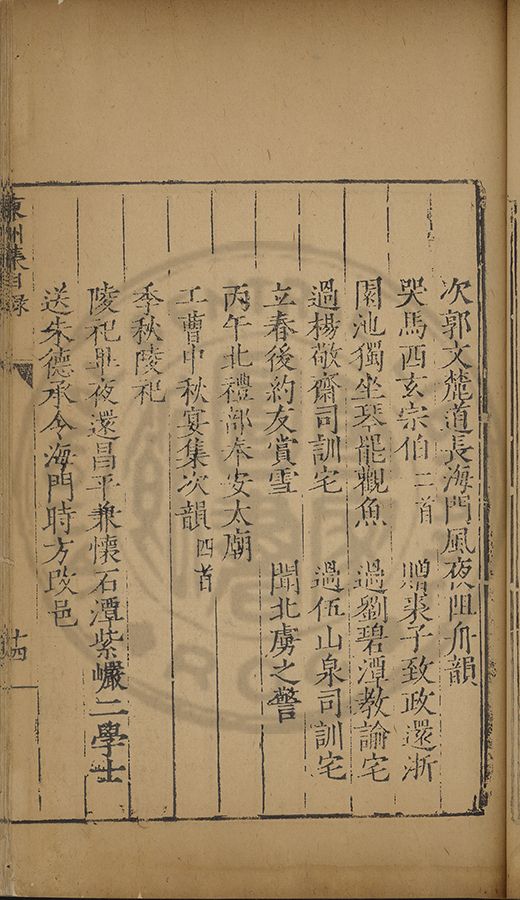 次郭文麓道長海門風夜阻舟韻
哭馬西玄宗伯二首 贈裘子致政還浙
園池獨坐琴罷觀魚 過劉碧潭教諭宅
過楊敬齋司訓宅 過伍山泉司訓宅
立春後約友賞雪 聞北虜之警
丙午北禮部奉安太廟
工曹中秋宴集次韻四首
季秋陵祀
陵祀畢夜還昌平兼懷石潭紫巖二學士
送朱德承令海門時方改邑
東洲集目錄 十四